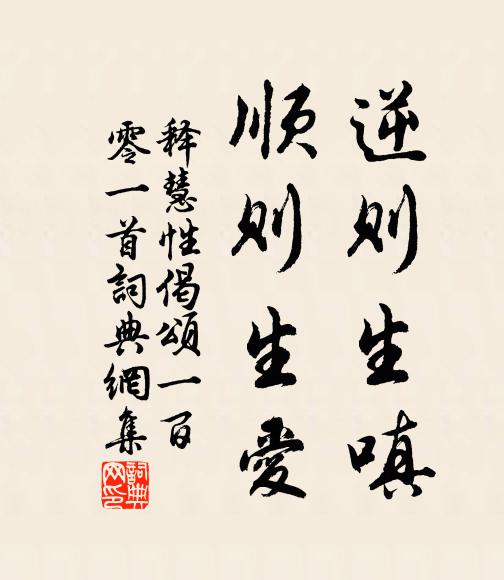 逆则生嗔
顺则生爱
释慧性偈颂一百
零一首詞典網集
詞典网印